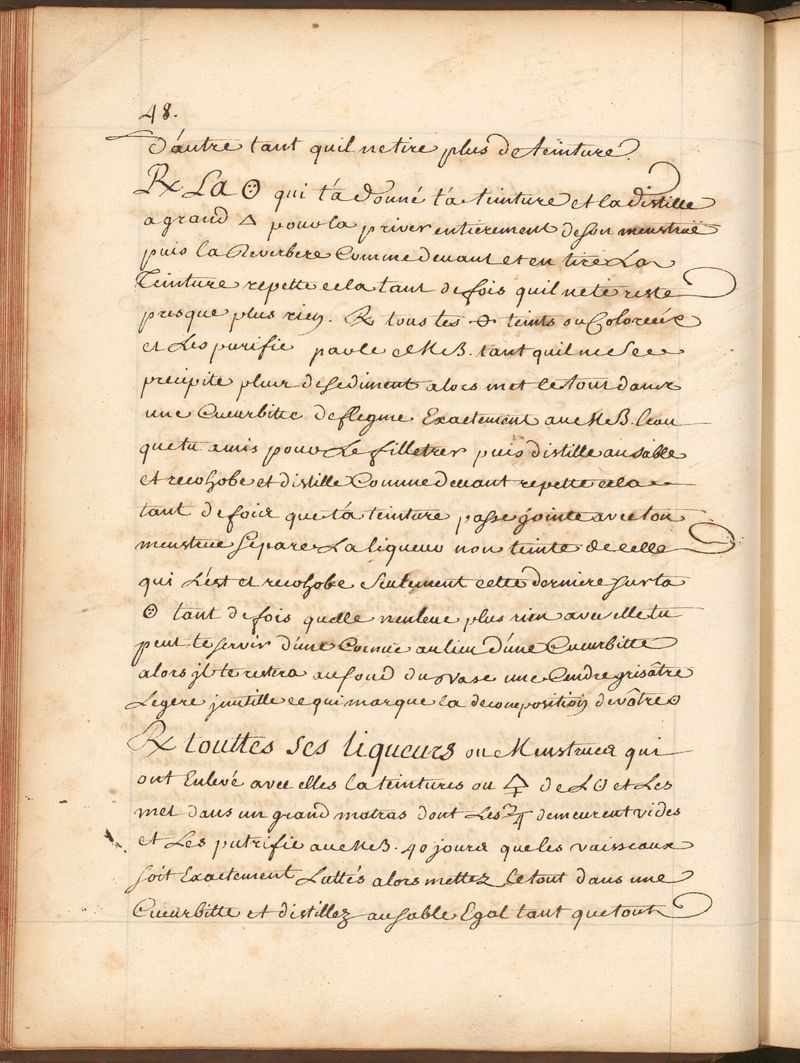 48.
d'autre tant quil ne tire plus de teinture.
℞ La ☉ qui t'a donné ta teinture et la distille
a grand △ pour la priver entierement de son menstruë
puis la Reverbere Comme devant et en tire La
Teinture repette cela tant de fois quil ne te reste
presque plus rien. ℞ tous tes teints ou Coloreéz
et Les purifie par le MB. tant quil ne Se
precipite plus de sediment alors met le tout dans
une Cucurbitte deflegme Exactement au MB. leau
que tu a mis pour Le filletrer puis distille au sable
et recohobe et distille Comme devant repette cela
tant de fois que ta teinture passe jointe avec ton
menstrue Separe La liqueur non teinte de celle
qui L'est et recohobe Seulement cette derniere sur ta
☉ tant de fois quelle nenleve plus rien avec elle tu
peut te servir d'une Cornuë au lieu d'une Cucurbitte
alors jl te restera au fond du vase une Cendre grisâtre
Legere jnutille ce qui marque la decomposition de vôtre
℞ touttes ses liqueurs ou Menstrues qui
ont Enlevé avec elles la teintures ou 🜍 de L☉ et Les
met dans un grand matras dont Les 3/4 demeurent vides
et Les putrifie au MB. 40 jours que les vaisseaux
soit Exactement Luttés alors mettez le tout dans une
Cucurbitte et distillez au sable Egal tant que tout